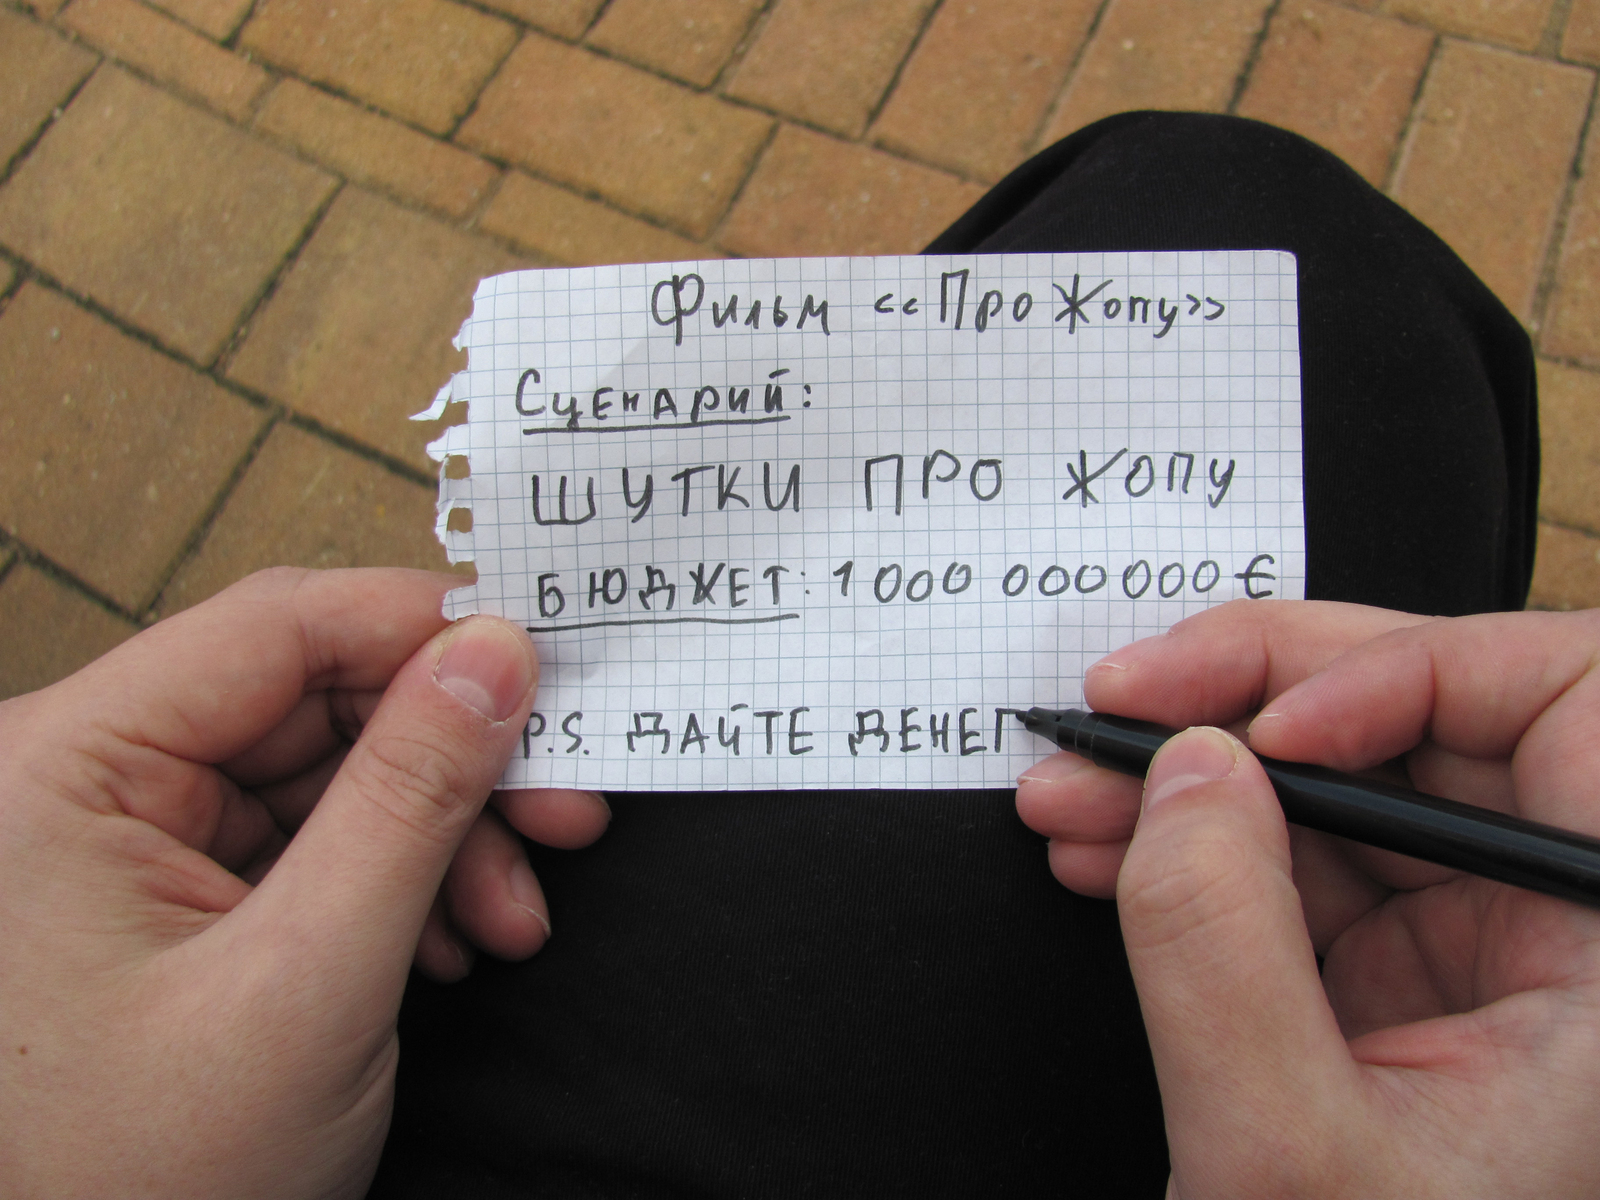 Фильм «Про Жопу»
Сценарий:
ШУТКИ ПРО ЖОПУ
БЮДЖЕТ: 1 000 000 000 €
P.S. ДАЙТЕ ДЕНЕГ